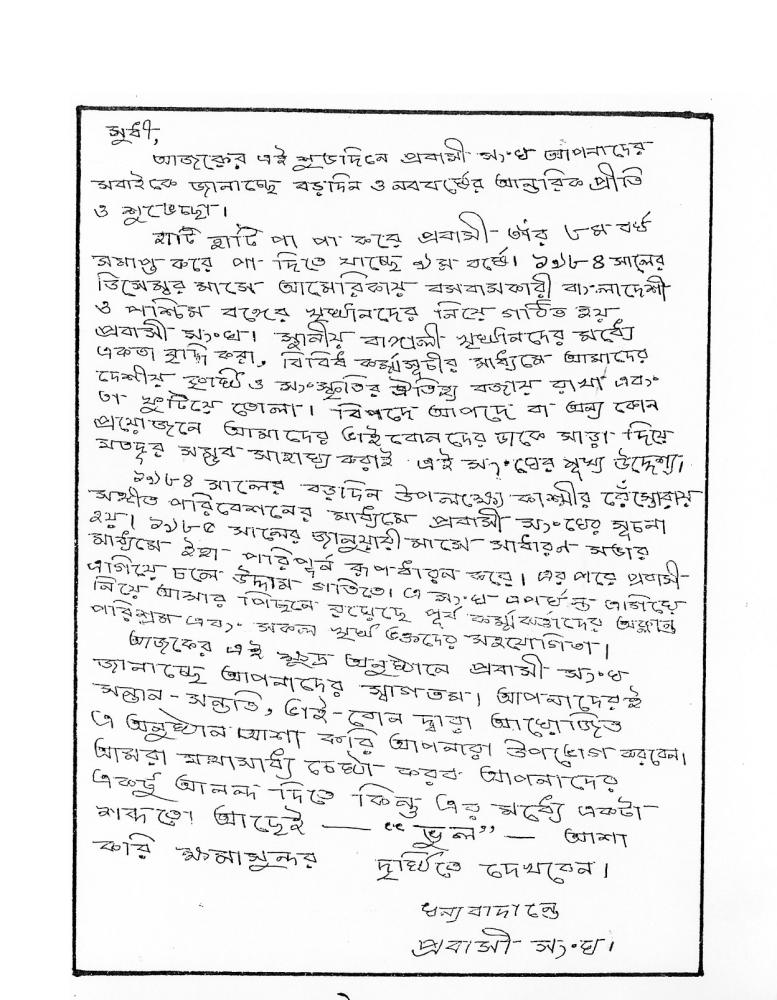 সুধী,
আজকের এই শুভদিনে প্রবাসী সংঘ আপনাদের
সবাইকে জানাচ্ছে বড়দিন ও নববর্ষের আন্তরিক প্রীতি
ও শুভেচ্ছা।
হাটি হাটি পা পা করে প্রবাসী তাঁর ৮ম বর্ষ
সমাপ্ত করে পা দিতে যাচ্ছে ৯ম বর্ষে। ১৯৮৪ সালের
ডিসেম্বর মাসে আমেরিকায় বসবাসকারী বাংলাদেশী
ও পশ্চিম বঙ্গের খৃষ্টানদের নিয়ে গঠিত হয়
প্রবাসী সংঘ। স্থানীয় বাঙ্গালী খৃষ্টানদের মধ্যে
একতা বৃদ্ধি করা, বিবিধ কর্ম্মসূচীর মাধ্যমে আমাদের
দেশীয় কৃষ্টি ও সংস্কৃতির ঐতিহ্য বজায় রাখা এবং
তা ফুটিয়ে তোলা। বিপদে আপদে বা অন্য কোন
প্রয়োজনে আমাদের ভাইবোনদের ডাকে সাড়া দিয়ে
যতদূর সম্ভব সাহায্য করাই এই সংঘের মূখ্য উদ্দেশ্য।
১৯৮৪ সালের বড়দিন উপলক্ষ্যে কাশ্মীর রেঁস্তোরায়
সঙ্গীত পরিবেশনের মাধ্যমে প্রবাসী সংঘের সূচনা
হয়। ১৯৮৫ সালের জানুয়ারী মাসে সাধারণ সভার
মাধ্যমে ইহা পরিপূর্ন রূপধারন করে। এর পরে প্রবাসী
এগিয়ে চলে উদ্দাম গতিতে। এ সংঘ এপর্যন্ত এগিয়ে
নিয়ে আসার পিছনে রয়েছে পূর্ব কর্ম্মকর্ত্তাদের অক্লান্ত
পরিশ্রম এবং সকল খৃষ্ট ভক্তদের সহযোগিতা।
আজকের এই ক্ষুদ্র অনুষ্ঠানে প্রবাসী সংঘ
জানাচ্ছে আপনাদের স্বাগতম। আপনাদেরই
সন্তান-সন্ততি, ভাই-বোন দ্বারা আয়োজিত
এ অনুষ্ঠান আশা করি আপনারা উপভোগ করবেন।
আমরা যথাসাধ্য চেষ্টা করব আপনাদের
একটু আনন্দ দিতে কিন্তু এর মধ্যে একটা
শব্দতো আছেই — “ভুল” — আশা
করি ক্ষমাসুন্দর দৃষ্টিতে দেখবেন।
ধন্যবাদান্তে
প্রবাসী সংঘ।